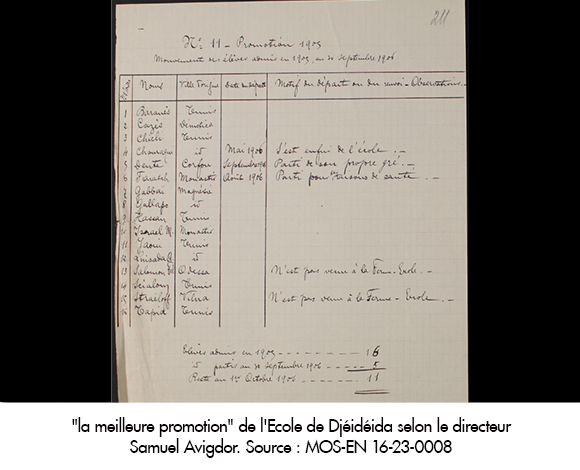 211
No 11 - Promotion 1905
Mouvement des élèves admis en 1905, au 30 Septembre 1906
Noms Ville d'origine Date du départ Motif du départ ou du renvoi - Observations. -
1 Baranès Tunis
2 Cazès Demotica
3 Chicli Tunis
4 Chouraqui id Mai 1906 S'est enfui de l'école. -
5 Dente Corfou Septembre 06 Parti de son propre gré. -
6 Faradji Monastir Août 1906 Parti pour raisons de santé. -
7 Gabbai Magnésie
8 Galiapo id
9 Hassan Tunis
10 Israel M. Monastir
11 Jaoui Tunis
12 id
13 Salomon Odessa N'est pas venu à la Ferme-Ecole. -
14 Scialom Tunis
15 Vilna N'est pas venu à la Ferme-Ecole. -
16 Tapia Tunis
Elèves admis en 1905 - - - - - - - 16
id partis au 30 Septembre 1906 - - - - 5
Reste au 1er Octobre 1906 - - - - - 11
"la meilleure promotion" de l'Ecole de Djéidéida selon le directeur
Samuel Avigdor. Source : MOS-EN 16-23-0008